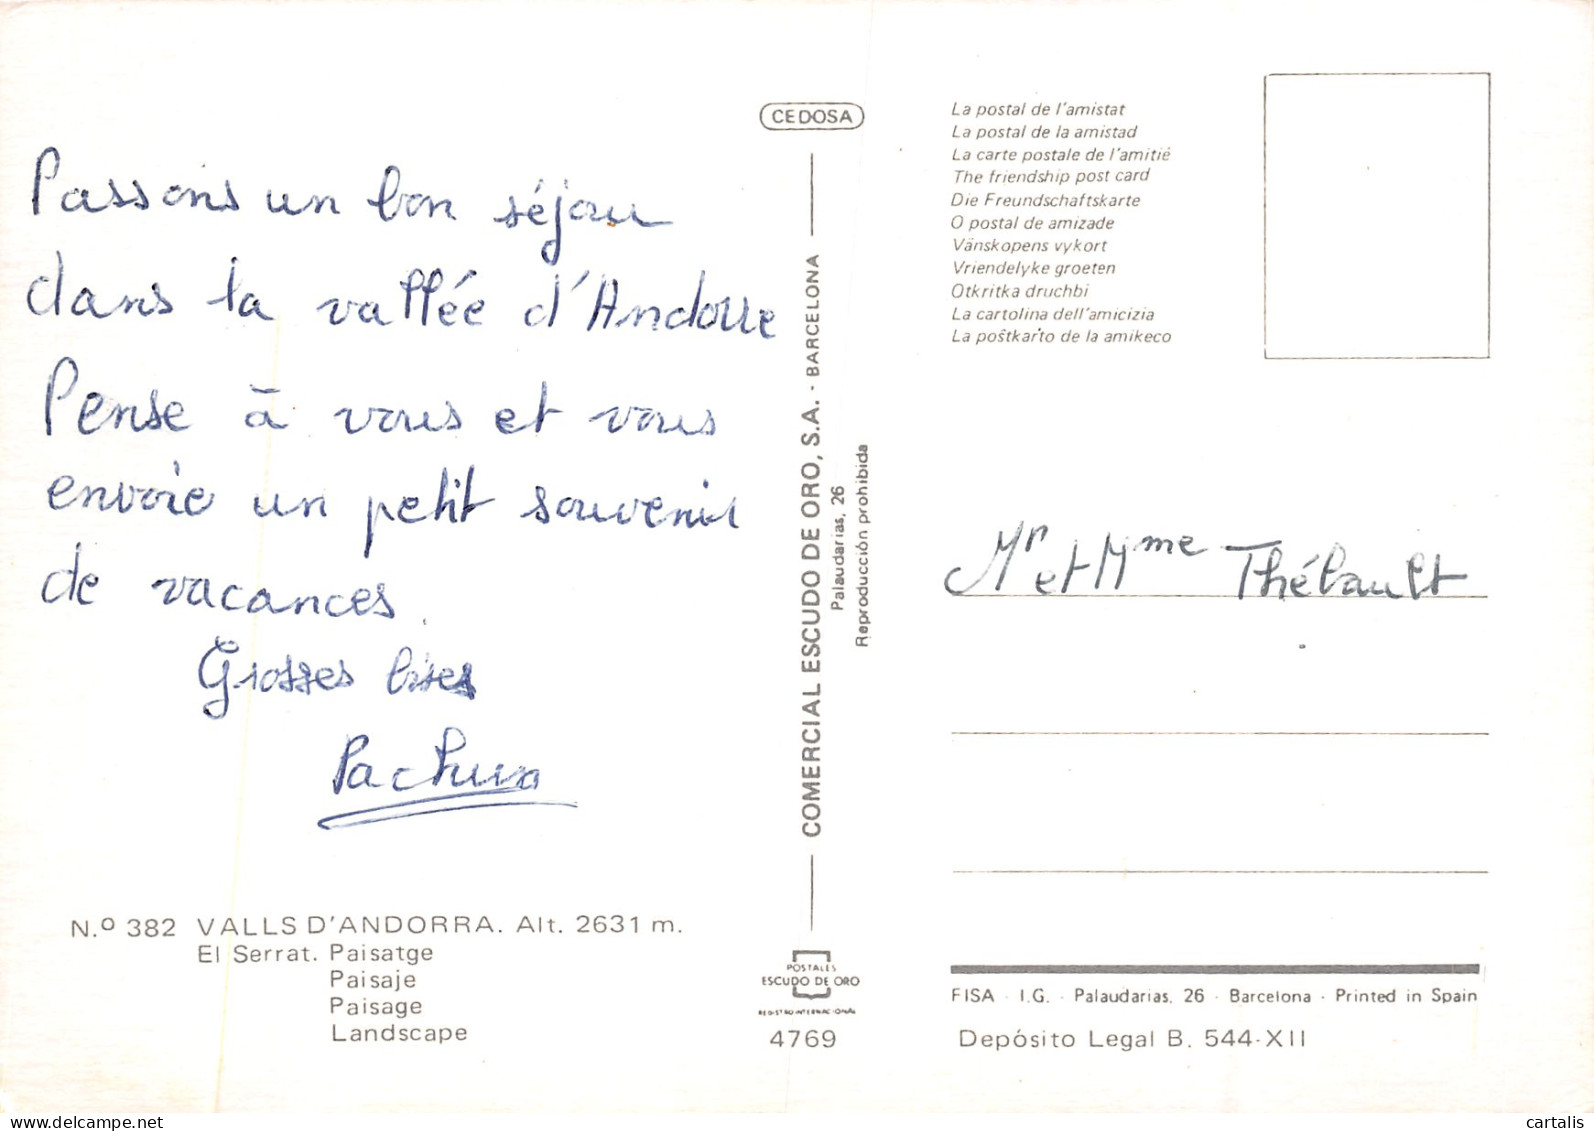 Passons un bon séjou
dans la vallée d'Andorre
Pense à vous et vous
envoie un petit souvenir
de vacances.
Grosses bises
N.º 382 VALLS D'ANDORRA. Alt. 2631 m.
El Serrat. Paisatge
Paisaje
Paisage
Landscape
CEDOSA
COMERCIAL ESCUDO DE ORO, S.A. - BARCELONA
Palaudarias, 26
Reproducción prohibida
POSTALES
ESCUDO DE ORO
REGISTRO INTERNACIONAL
4769
La postal de l'amistat
La postal de la amistad
La carte postale de l'amitié
The friendship post card
Die Freundschaftskarte
O postal de amizade
Vänskopens vykort
Vriendelyke groeten
Otkritka druchbi
La cartolina dell'amicizia
La poŝtkarto de la amikeco
Mr et Mme Thébault
FISA - I.G. - Palaudarias, 26 - Barcelona - Printed in Spain
Depósito Legal B. 544-XII
cartalis